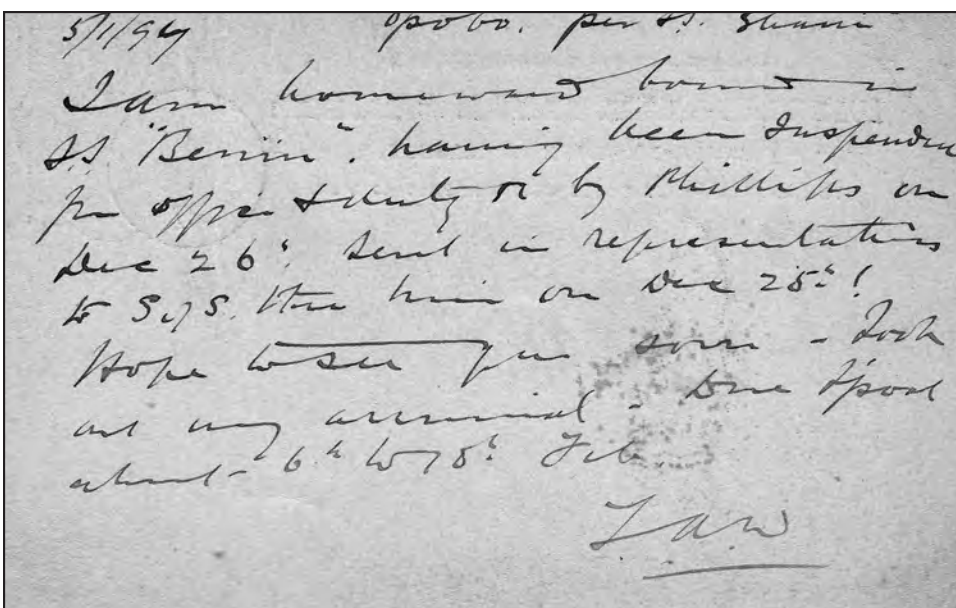 5/1/97 Opobo. per SS.
I am homeward bound in
SS. "Benin". having been Suspended
fm office & duty by Phillips on
Dec 26th. Sent in representations
to S. of S. thro him on Dec 25th!
Hope to see you soon - Look
out my arrival - Due L'pool
about 6th to 8th Feb.
T.A.W